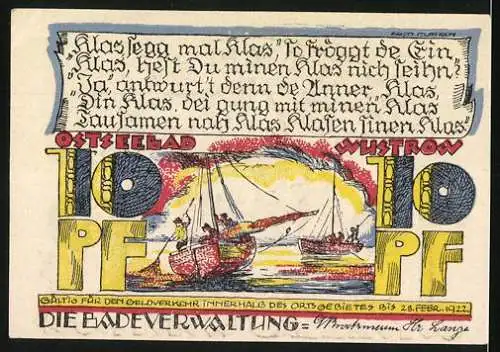 „Klas segg mal Klas," so fröggt de Ein
„Klas, hest Du minen Klas nich seihn?"
„Ja" antwurt't denn de Anner, „Klas,
Din Klas, dei gung mit minen Klas
Tausamen nah Klas Klasen sinen Klas."
OSTSEEBAD WUSTROW
10 10
PF PF
GÜLTIG FÜR DEN GELDVERKEHR INNERHALB DES ORTSGEBIETES BIS 28. FEBR. 1922
DIE BADEVERWALTUNG =